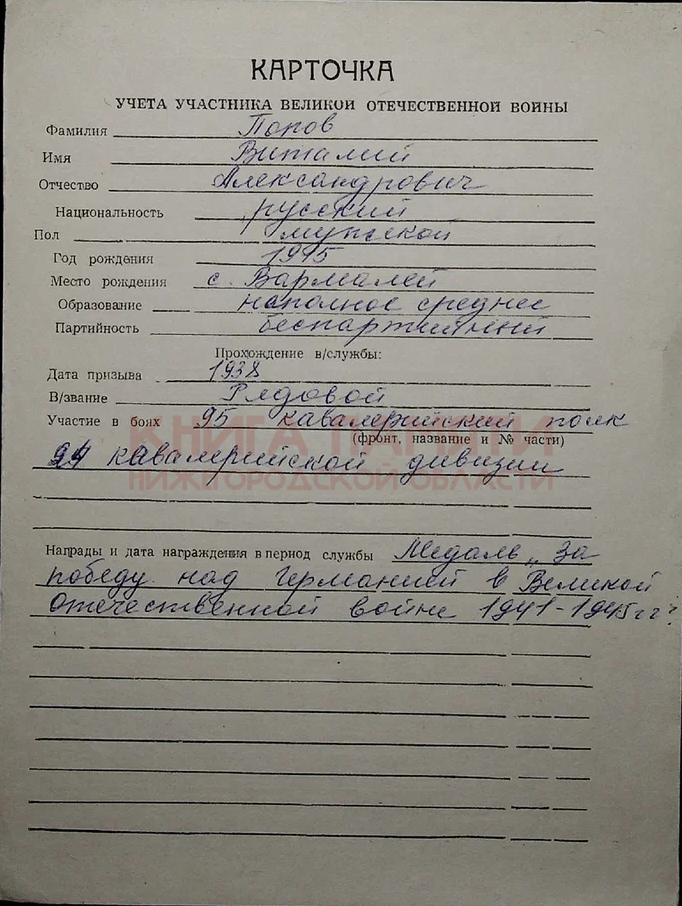 КАРТОЧКА
УЧЕТА УЧАСТНИКА ВЕЛИКОЙ ОТЕЧЕСТВЕННОЙ ВОЙНЫ
Фамилия Попов
Имя Виталий
Отчество Александрович
Национальность русский
Пол мужской
Год рождения 1915
Место рождения с. Вармалей
Образование неполное среднее
Партийность беспартийный
Прохождение в/службы:
Дата призыва 1938
В/звание Рядовой
Участие в боях 95 кавалерийский полк
(фронт, название и № части)
КНИГА ПАМЯТИ
кавалерийской дивизии
НИЖЕГОРОДСКОЙ ОБЛАСТИ
Награды и дата награждения в период службы Медаль „За
победу над Германией в Великой
Отечественной войне 1941-1945 гг"